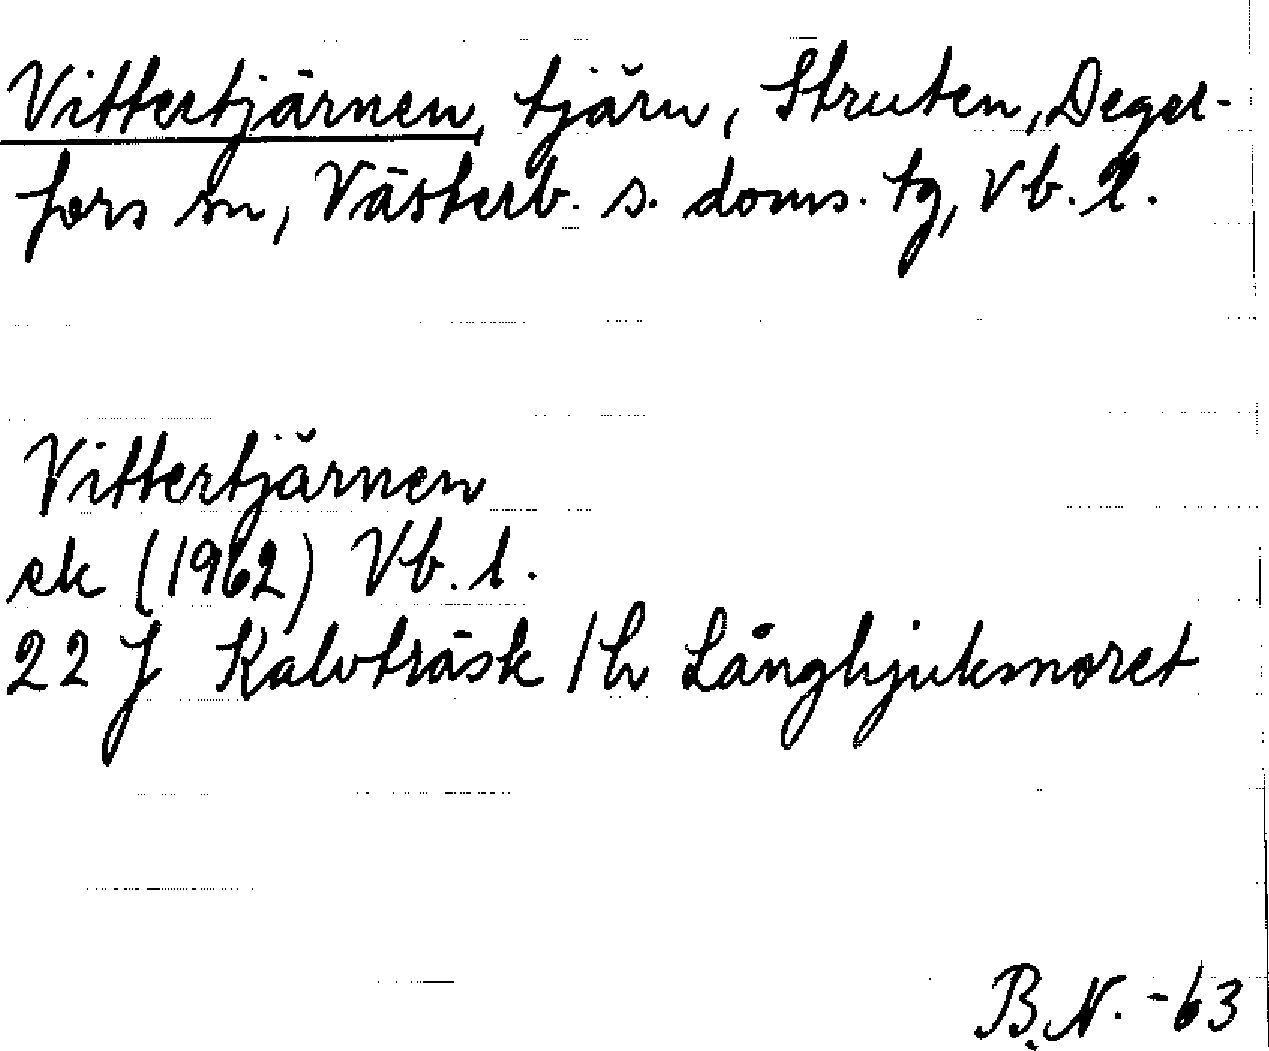 Vittertjärnen, tjärn, Struten, Deger-
fors sn, Västerb. s. doms. tg, Vb. l.
Vittertjärnen
ek (1962) Vb. l.
22 J Kalvträsk 1h Långhjuksmoret
B.N. -63